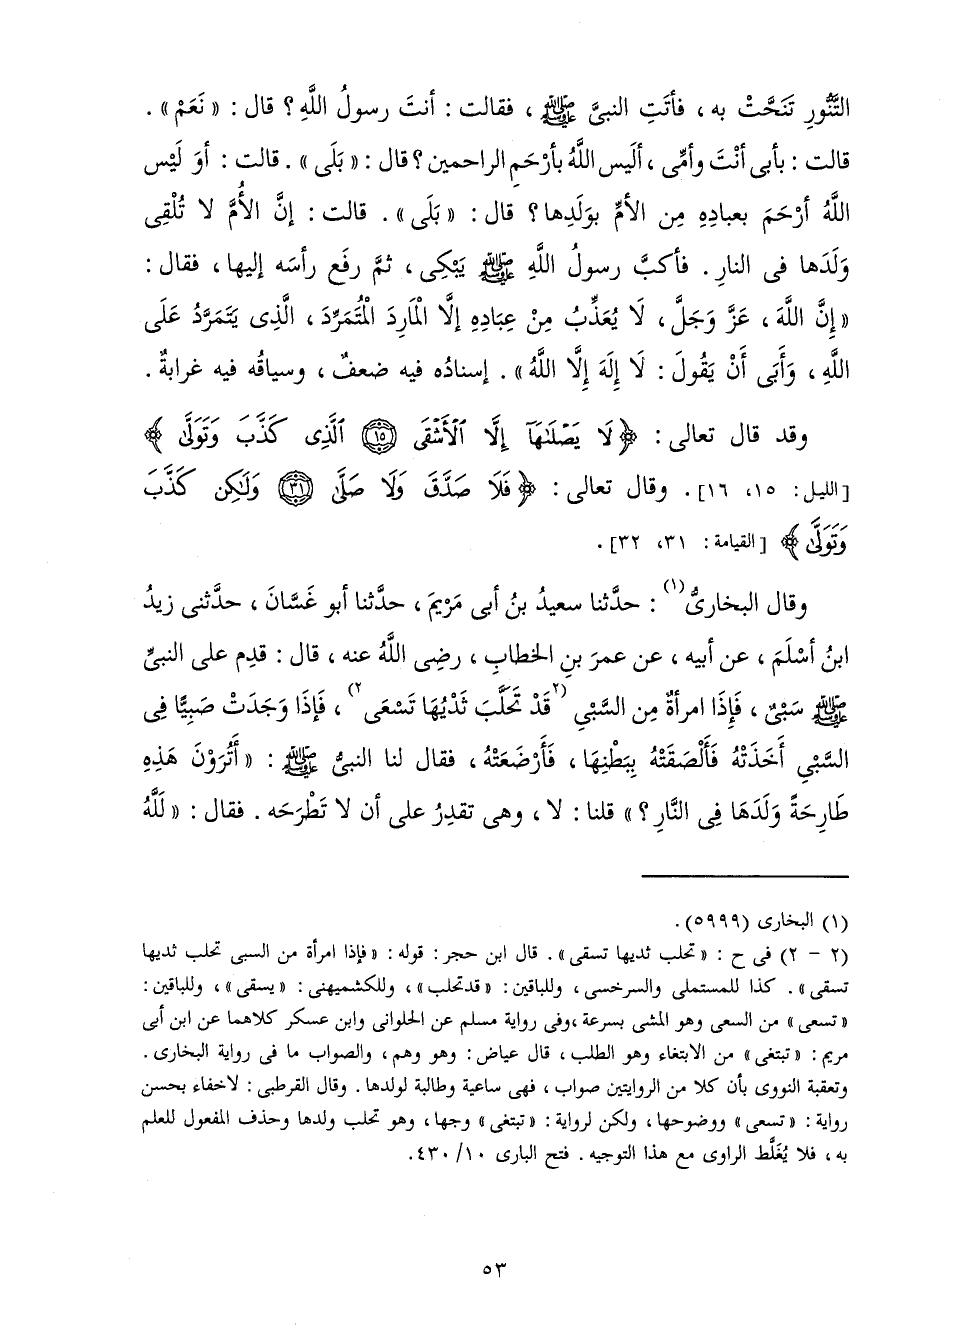 التَّنُّورِ تَنَحَّتْ به ، فأتَتِ النبىَّ ﷺ ، فقالت : أنتَ رسولُ اللَّهِ ؟ قال : « نَعَمْ » .
قالت : بأبى أنْتَ وأمِّى ، أليس اللَّهُ بأرْحَمِ الراحمين ؟ قال : « بَلَى » . قالت : أوَ لَيْس
اللَّهُ أرْحَمَ بعبادِهِ مِن الأمِّ بوَلَدِها ؟ قال : « بَلَى » . قالت : إنَّ الأُمَّ لا تُلْقِى
وَلَدَها فى النارِ . فأكبَّ رسولُ اللهِ ﷺ يَبْكِى ، ثمَّ رفَع رأسَه إليها ، فقال :
« إِنَّ اللَّهَ ، عَزَّ وَجَلَّ ، لَا يُعَذِّبُ مِنْ عِبَادِهِ إِلَّا الْمَارِدَ الْمُتَمَرِّدَ ، الَّذِى يَتَمَرَّدُ عَلَى
اللَّهِ ، وَأَبَى أَنْ يَقُولَ : لَا إِلَهَ إِلَّا اللَّهُ » . إسنادُه فيه ضعفٌ ، وسياقُه فيه غرابةٌ .
وقد قال تعالى : ﴿ لَا يَصْلَىٰهَآ إِلَّا ٱلْأَشْقَى ۝١٥ ٱلَّذِى كَذَّبَ وَتَوَلَّىٰ ﴾
[الليل : ١٥، ١٦] . وقال تعالى : ﴿ فَلَا صَدَّقَ وَلَا صَلَّىٰ ۝٣١ وَلَٰكِن كَذَّبَ
وَتَوَلَّىٰ ﴾ [القيامة : ٣١، ٣٢] .
وقال البخارىُّ(١) : حدَّثنا سعيدُ بنُ أبى مَرْيَمَ ، حدَّثنا أبو غَسَّانَ ، حدَّثنى زيدُ
ابنُ أسْلَمَ ، عن أبيه ، عن عمرَ بنِ الخطابِ ، رضِى اللَّهُ عنه ، قال : قدِم على النبىِّ
ﷺ سَبْىٌ ، فَإِذَا امرأةٌ مِن السَّبْىِ (٢ قَدْ تَحَلَّبَ ثَدْيُهَا تَسْعَى ٢) ، فَإِذَا وَجَدَتْ صَبِيًّا فِى
السَّبْىِ أَخَذَتْهُ فَأَلْصَقَتْهُ بِبَطْنِهَا ، فَأَرْضَعَتْهُ ، فقال لنا النبىُّ ﷺ : « أَتُرَوْنَ هَذِهِ
طَارِحَةً وَلَدَهَا فِى النَّارِ ؟ » قلنا : لا ، وهى تقدِرُ على أن لا تَطْرَحَه . فقال : « لَلَّهُ
(١) البخارى (٥٩٩٩) .
(٢ - ٢) فى ح : « تحلب ثديها تسقى » . قال ابن حجر : قوله : « فإذا امرأة من السبى تحلب ثديها
تسقى » . كذا للمستملى والسرخسى ، وللباقين : « قد تحلب » ، وللكشميهنى : « يسقى » ، وللباقين :
« تسعى » من السعى وهو المشى بسرعة ، وفى رواية مسلم عن الحلوانى وابن عسكر كلاهما عن ابن أبى
مريم : « تبتغى » من الابتغاء وهو الطلب ، قال عياض : وهو وهم ، والصواب ما فى رواية البخارى .
وتعقبة النووى بأن كلا من الروايتين صواب ، فهى ساعية وطالبة لولدها . وقال القرطبى : لا خفاء بحسن
رواية : « تسعى » ووضوحها ، ولكن لرواية : « تبتغى » وجها ، وهو تحلب ولدها وحذف المفعول للعلم
به ، فلا يُغَلَّط الراوى مع هذا التوجيه . فتح البارى ١٠ / ٤٣٠ .
٥٣